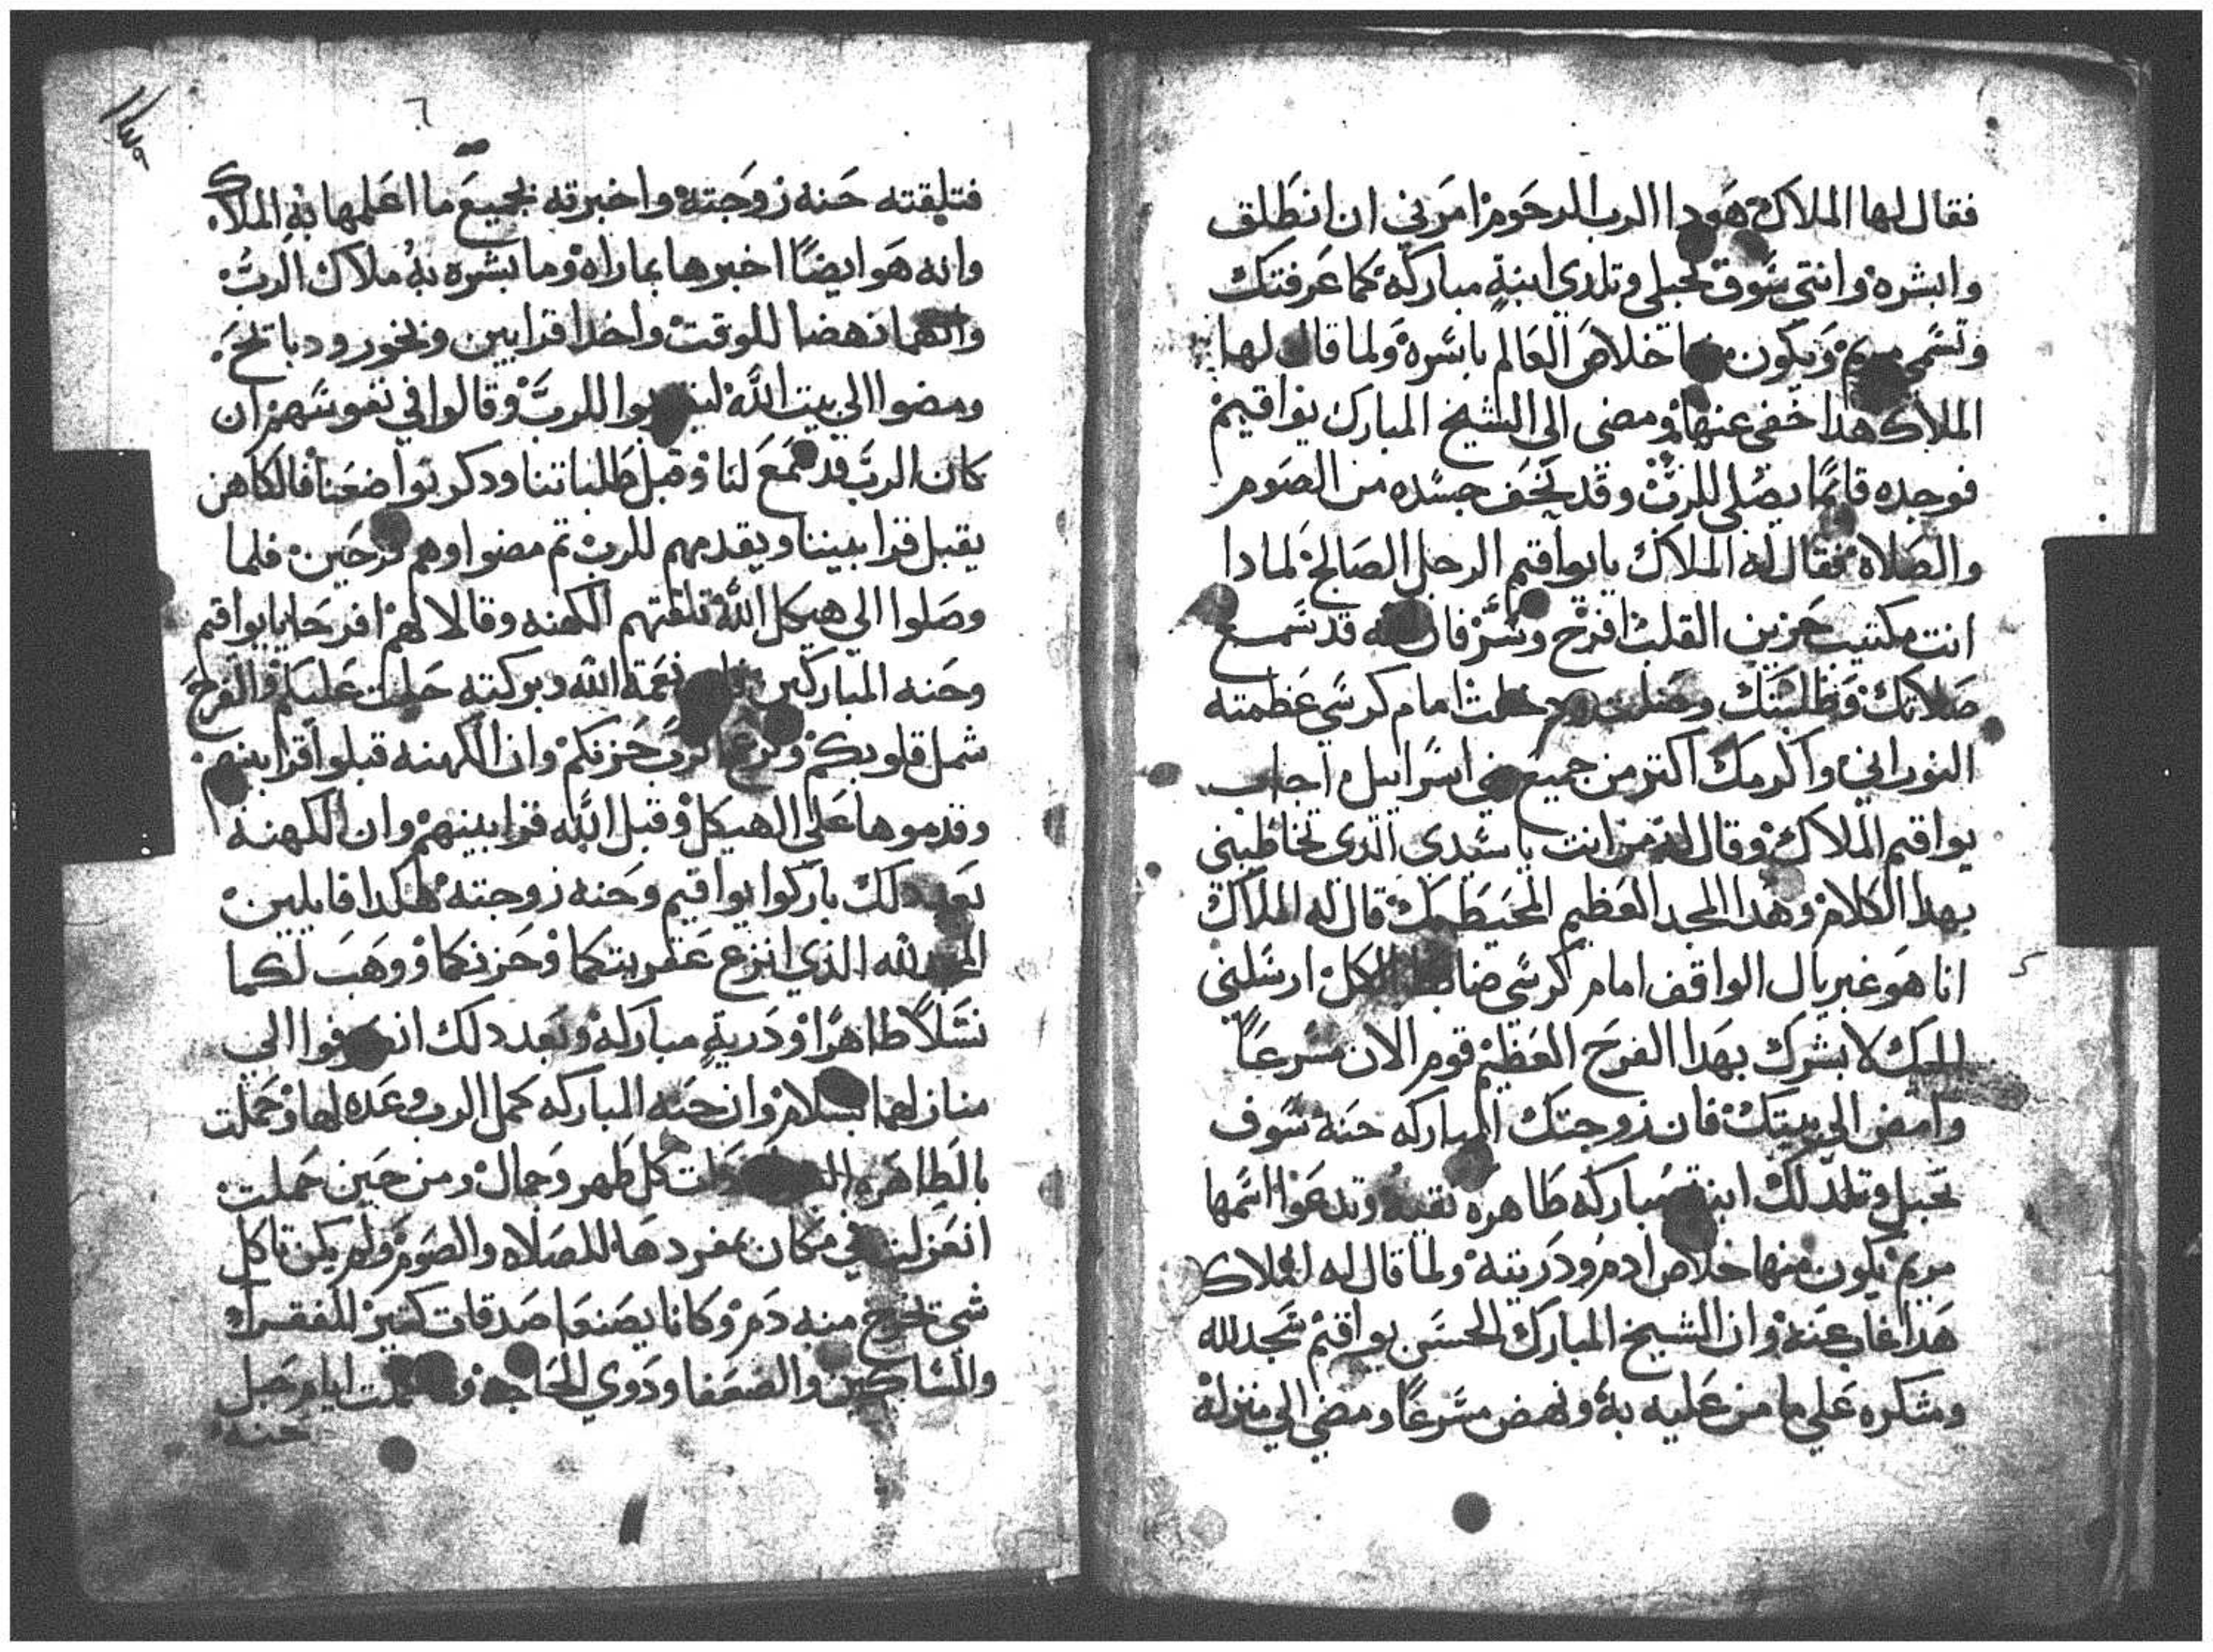 فقال لها الملاك هودا الرب الرحوم امرني ان انطلق
وابشره وانتي سوف تحبلي وتلدي ابنةٍ مباركه كما عرفتك
وتسمى مريم ويكون خلاص العالم باسره ولما قال لها
الملاك هدا خفى عنها ومضى الى الشيخ المبارك يواقيم
فوجده قائمًا يصلي للرب وقد نحف جسده من الصوم
والصلاه فقال له الملاك يا يواقيم الرجل الصالح لمادا
انت مكتيب حزين القلب افرح وسر فان الله قد سمع
صلاتك وطلبتك وصلت ودخلت امام كرسي عظمته
النوراني واكرمك اكتر من جميع بني اسراييل اجاب
يواقيم الملاك وقال له من انت يا سيدي الدي تخاطبني
بهدا الكلام وهدا المجد العظيم المحيط بك قال له الملاك
انا هو غبريال الواقف امام كرسي ضابط الكل ارسلني
اليك لابشرك بهدا الفرح العظيم قوم الان مسرعًا
وامض الى بيتك فان زوجتك المباركه حنه سوف
تحبل وتلد لك ابنة مباركه طاهره نقيه وتدعوا اسمها
مريم يكون منها خلاص ادم ودريته ولما قال له الملاك
هدا غاب عنه وان الشيخ المبارك الحسن يواقيم سجد لله
وشكره علي ما من عليه به ونهض مسرعًا ومضي الي منزله
٦
فتلقته حنه زوجته واخبرته بجميع ما اعلمها به الملاك
وانه هو ايضًا اخبرها بما راه وما بشره به ملاك الرب
وانهما نهضا للوقت واخدا قرابين وبخور ودبايح
ومضوا الي بيت الله ليقربوا للرب وقالوا في نفوسهم ان
كان الرب قد سمع لنا وقبل طلباتنا ودكر تواضعنا فالكاهن
يقبل قرابيننا ويقدمهم للرب تم مضوا وهم فرحين فلما
وصلوا الي هيكل الله تلقتهم الكهنه وقالا لهم افرحا يا يواقيم
وحنه المباركين نعمة الله وبركته حلت عليكم والفرح
شمل قلوبكم ونزع كرب حزنكم وان الكهنه قبلوا قرابينهم
وقدموها علي الهيكل وقبل الله قرابينهم وان الكهنه
بعد دلك باركوا يواقيم وحنه زوجته هكدا قايلين
المجد لله الذي انزع عقوبتكما وحزنكما ووهب لكما
نسلًا طاهرًا ودريةٍ مباركه وبعد دلك انصرفوا الي
منازلهما بسلام وان حنه المباركه كمل الرب وعده لها وحملت
بالطاهره دات كل طهر وجمال ومن حين حملت
انعزلت في مكان بمفردها للصلاه والصوم ولم يكن تاكل
شي تخرج منه دم وكانا يصنعا صدقات كتير للفقرا
والمساكين والضعفا ودوي الحاجه وكملت ايام حبل
حنه